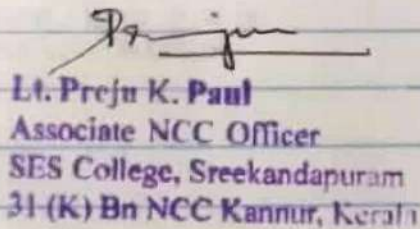 Lt. Preju K. Paul
Associate NCC Officer
SES College, Sreekandapuram
31 (K) Bn NCC Kannur, Kerala